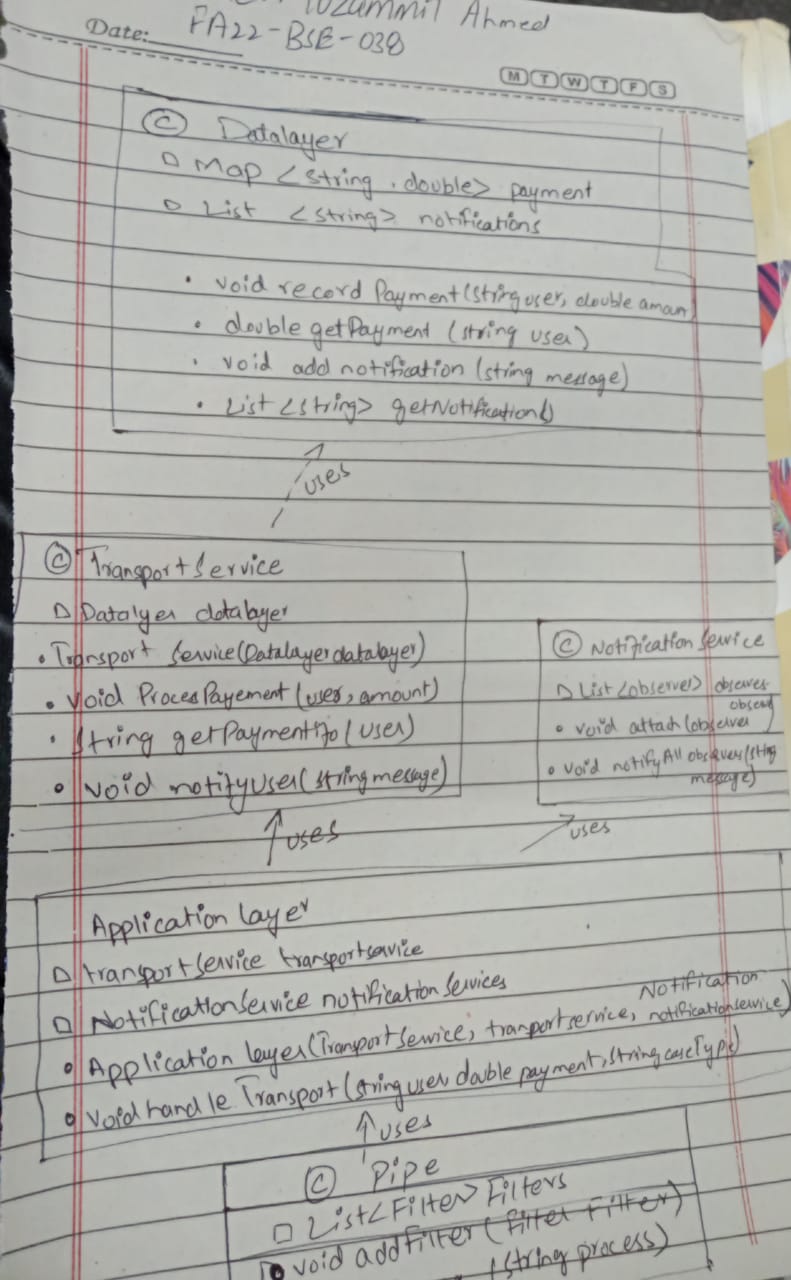 Ahmed
Date: FA22-BSE-038
M T W T F S
C Datalayer
Map <string, double> payment
List <string> notifications
• void record Payment (string user, double amoun
• double getPayment (string user)
• void add notification (string message)
• List <string> getNotification()
uses
C Transport Service
Datalyer datalayer
• Transport Service(Datalayer datalayer)
• void ProcesPayement (user, amount)
• String getPaymentifo (user)
• void notifyuser (string message)
C Notification Service
List <observer> observes
• void attach (observer
obserd
)
• void notifyAll observers (string
message)
uses
uses
Application layer
transportService transportservice
NotificationService notification Services
Notification
• Application layer (Transport Service, tranport service, notificationservice)
• void handle Transport (string user double payment, string caseType)
uses
C Pipe
List <Filter> Filters
• void addFilter (Filter Filter)
(string process)